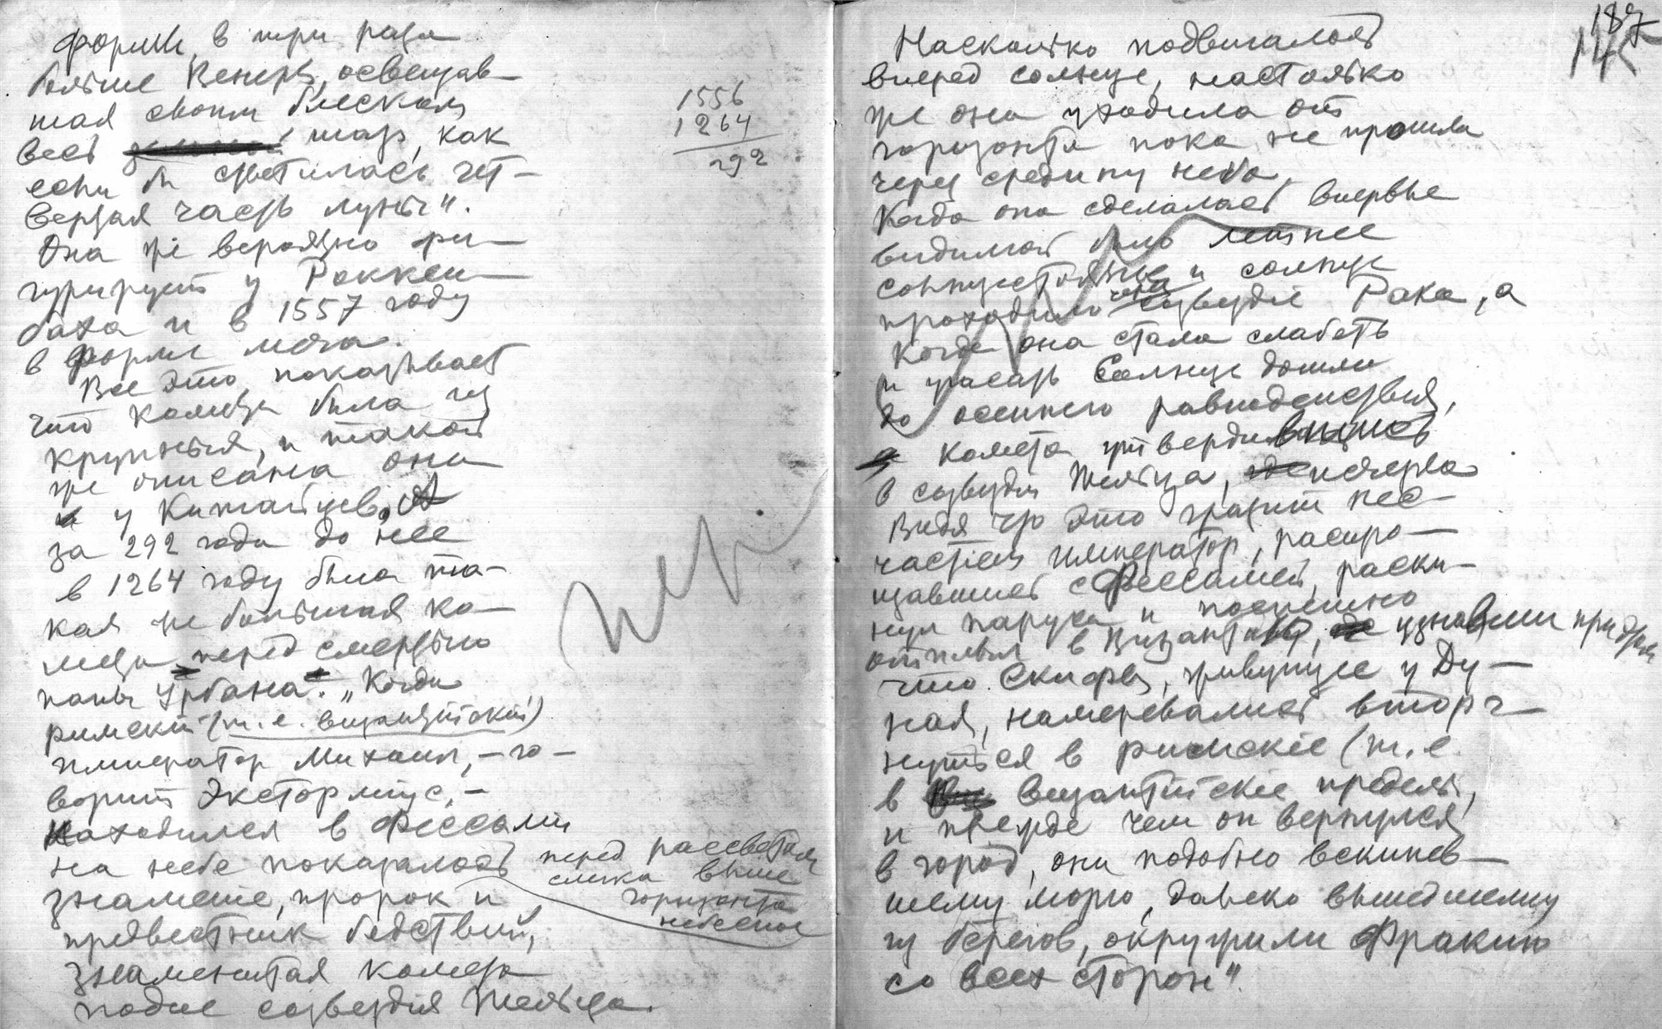 формы, в три раза
больше Венеры, освещав-
шая своим блеском
весь шар, как
если бы светилась чет-
вертая часть луны".
Она же вероятно фи-
гурирует у Роккен-
баха и в 1557 году
в форме меча.
Все это показывает
что комета была из
крупных, и такой
же описана она
у Китайцев. А
за 292 года до нее
в 1264 году была та-
кая же большая ко-
мета перед смертью
папы Урбана. „Когда
римский (т. е. византийский)
император Михаил, – го-
ворит Экстормиус, –
находился в Фессалии
на небе показалось перед рассветом
слегка выше
горизонта
небесное
знамение, пророк и
предвестник бедствий,
знаменитая комета
подле созвездия Тельца.
1556
1264
292
187
Насколько подвигалось
вперед солнце, настолько
же она уходила от
горизонта пока не прошла
через средину неба.
Когда она сделалась впервые
видимой было летнее
солнцестояние и солнце
проходило чрез созвездие Рака, а
когда она стала слабеть
и угасать Солнце дошли
до осеннего равноденствия,
комета утвердившись
в созвездии Тельца, исчезла
Видя что это грозит нес-
частием император, распро-
щавшись с Фессалией, раски-
нул паруса и поспешно
отплыл в Византию, узнавши при этом
что Скифы, живущие у Ду-
ная, намеревались вторг-
нуться в римские (т. е.
в византийские пределы,
и прежде чем он вернулся
в город, они подобно вскипев-
шему морю, далеко вышедшему
из берегов, окружили Фракию
со всех сторон".